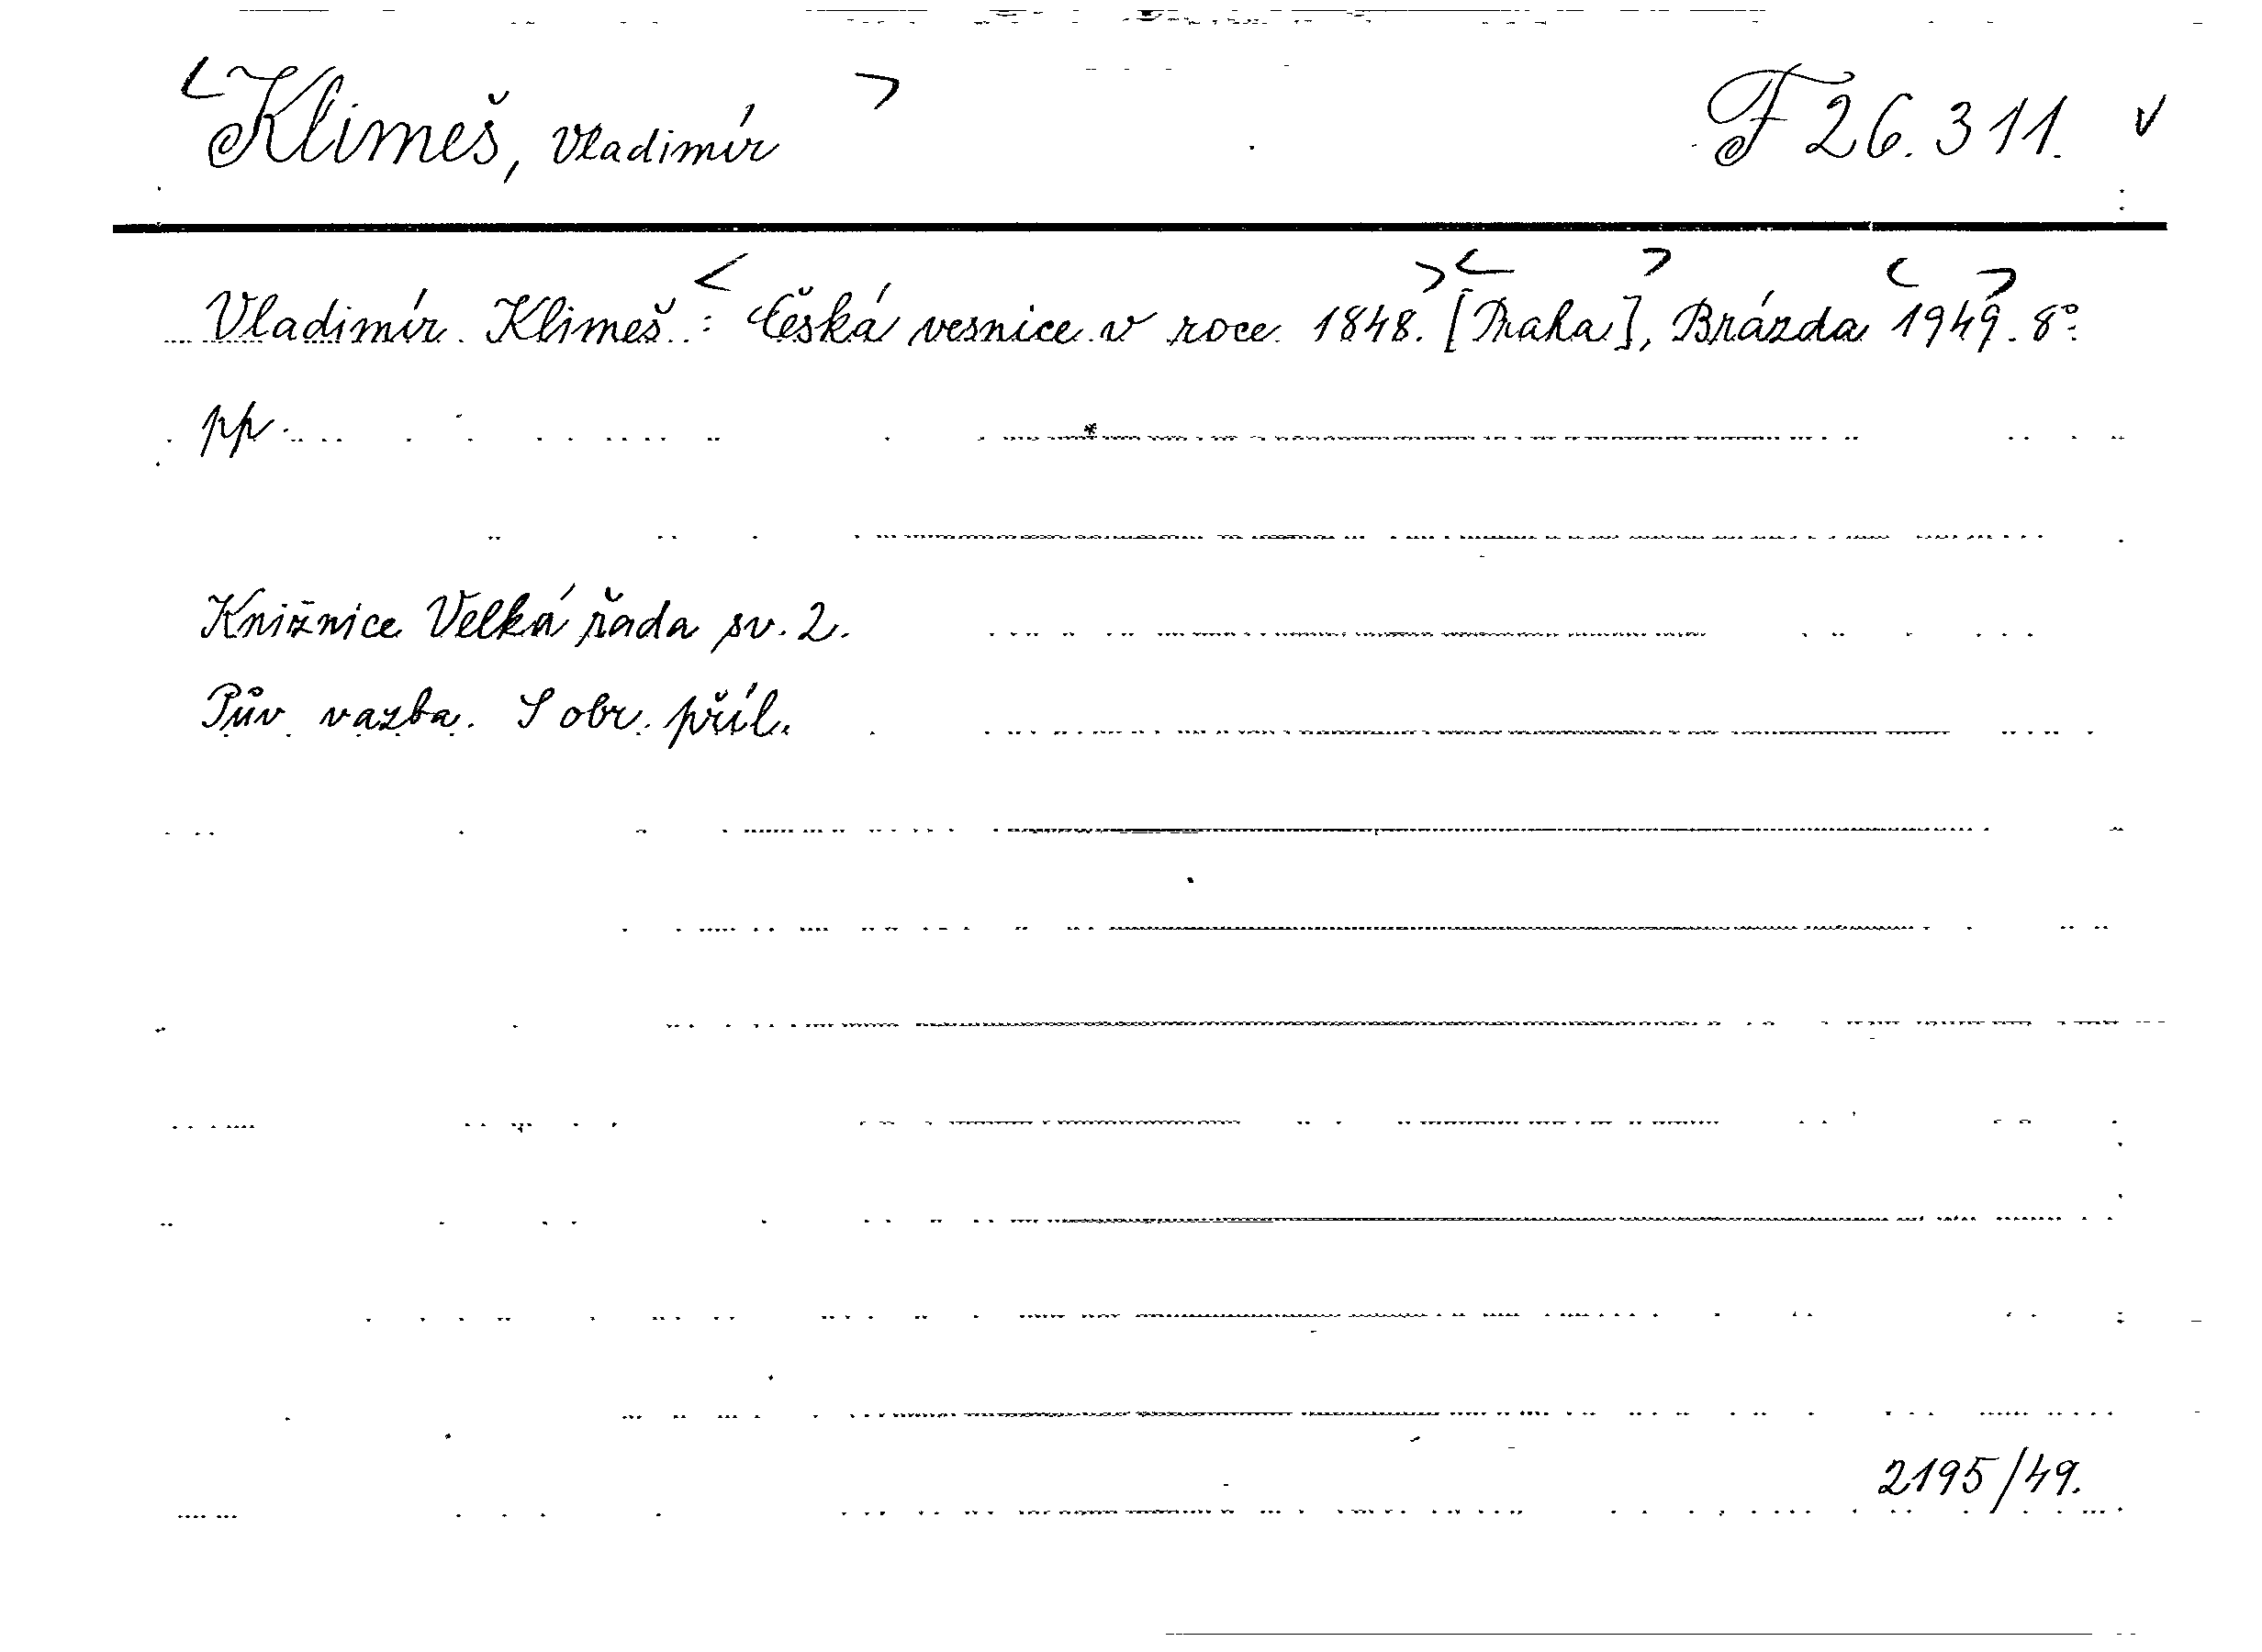 <Klimeš, Vladimír> F 26.311. v
Vladimír Klimeš: <Česká vesnice v roce 1848.> <[Praha]>, Brázda <1949>. 8°
pp
Knižnice Velká řada sv. 2.
Pův. vazba. S obr. příl.
2195/49.